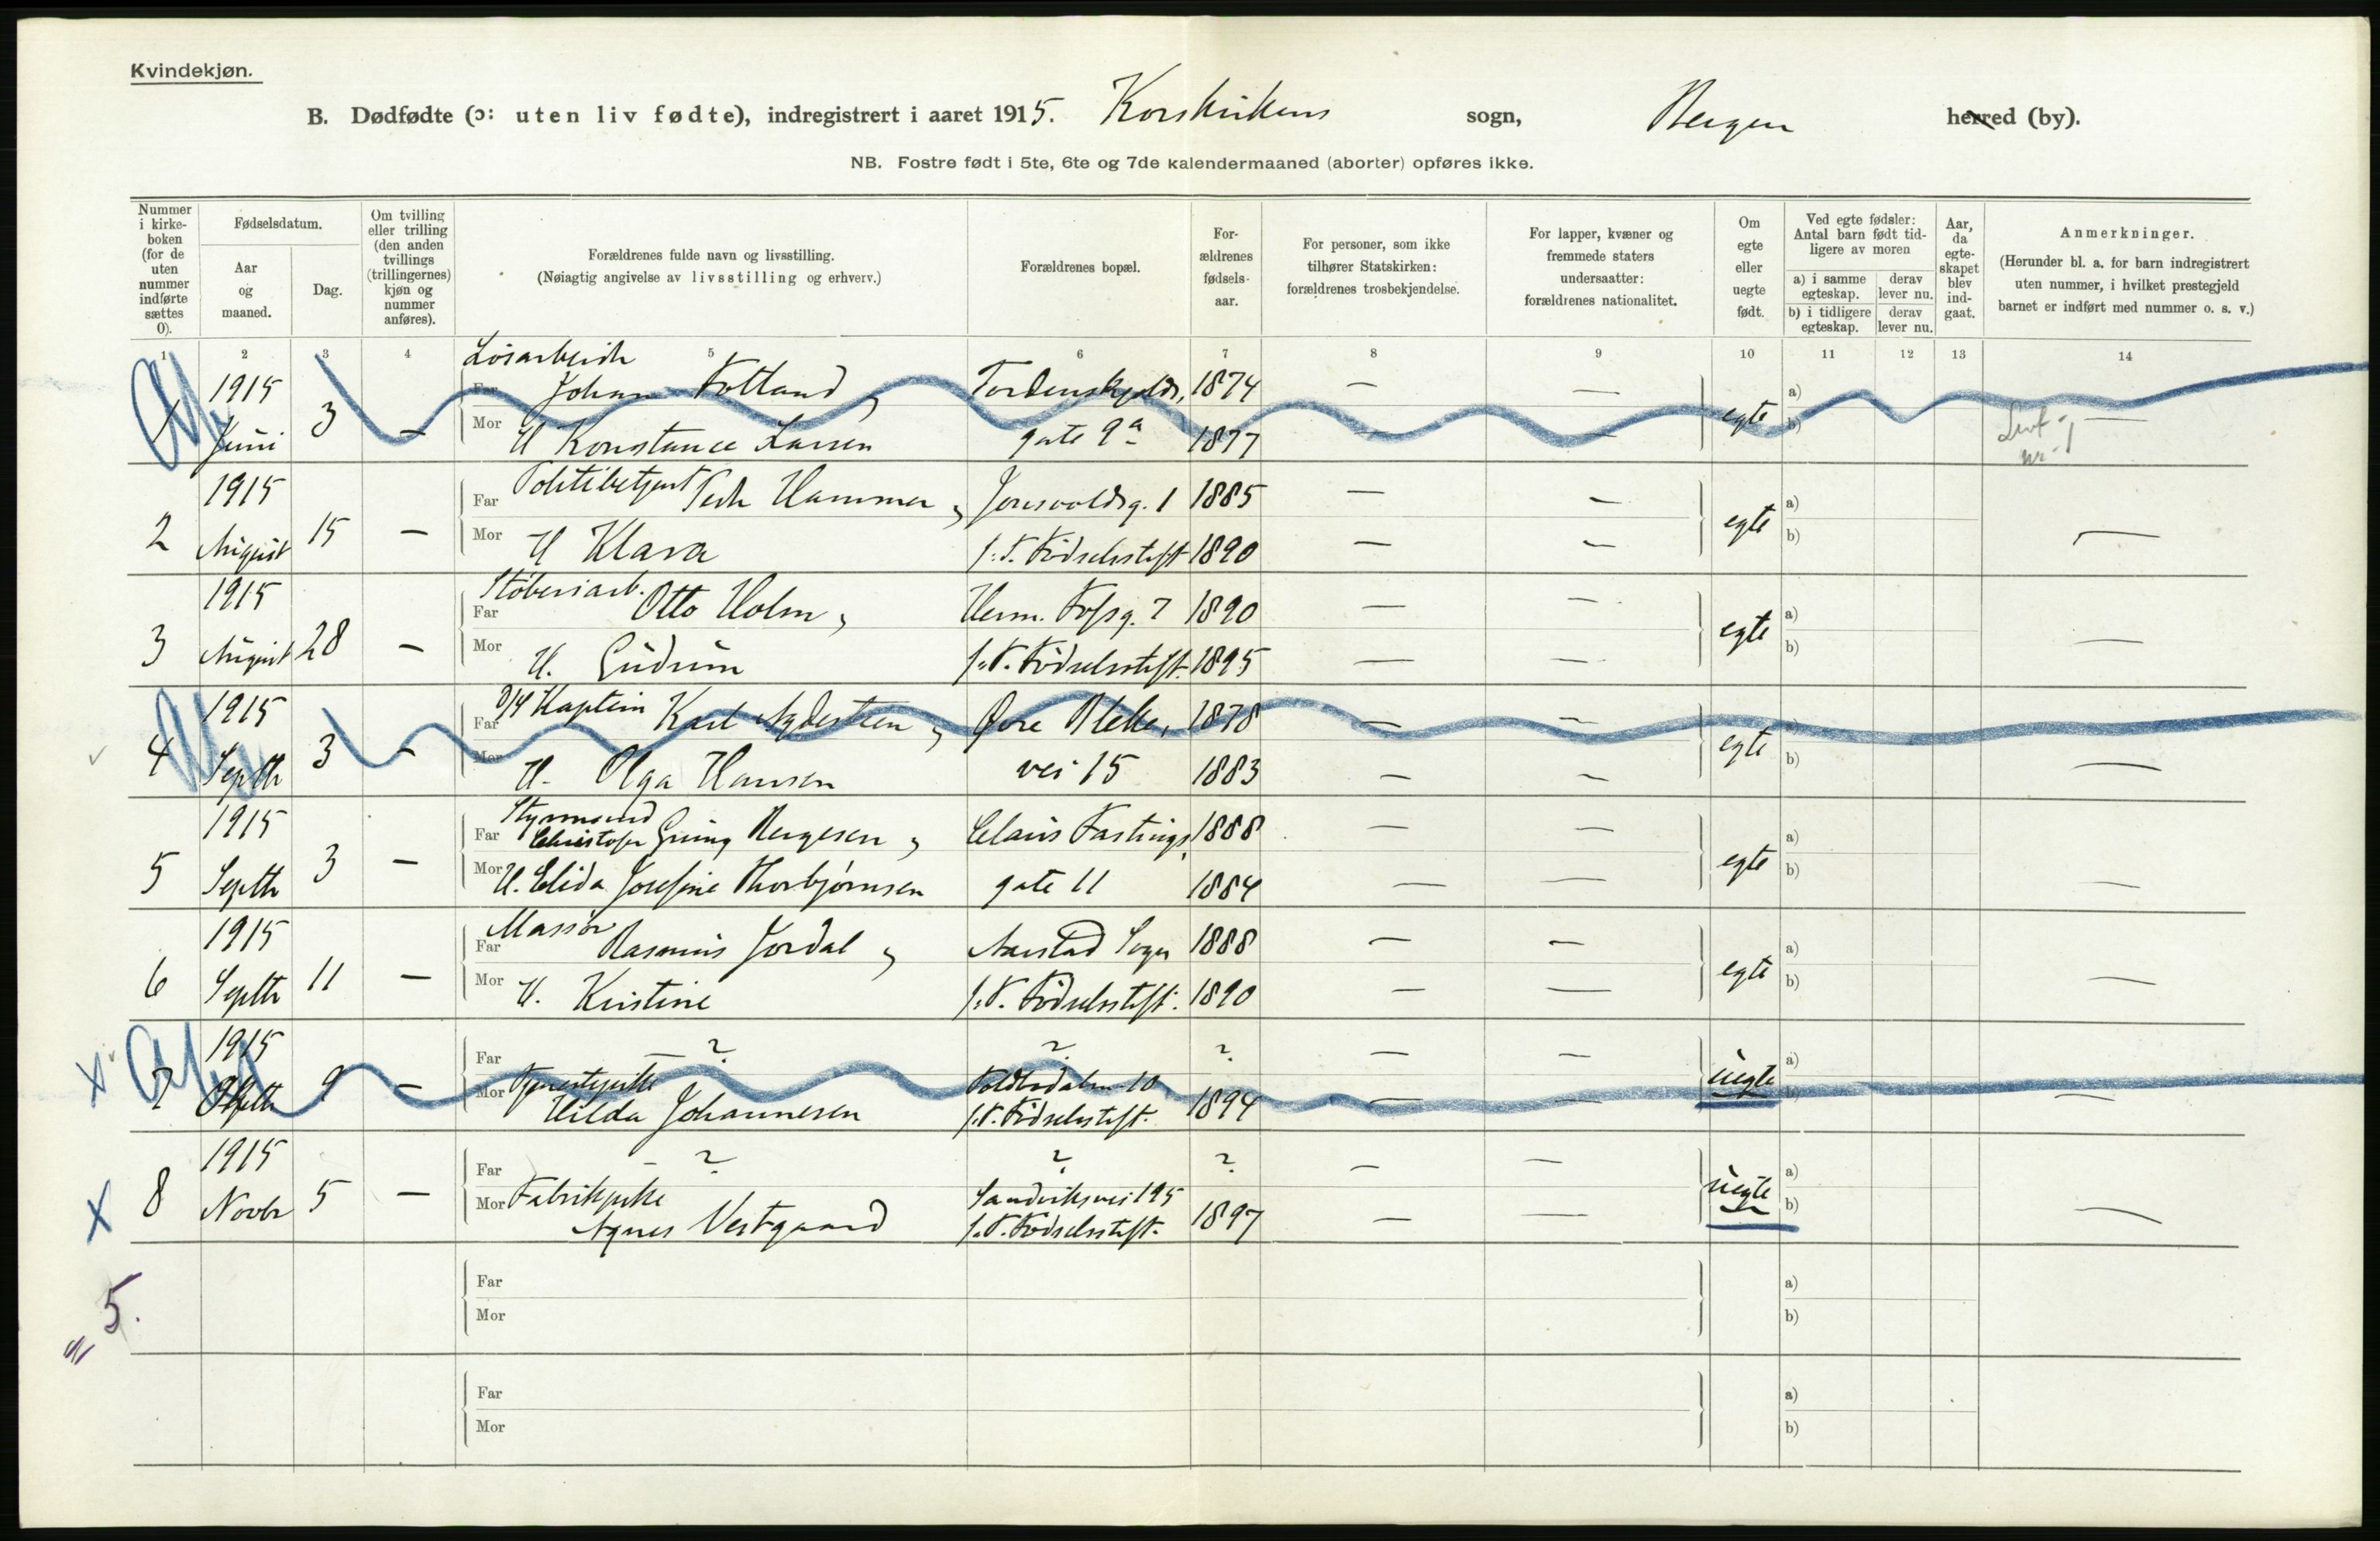 Kvindekjøn.
B. Dødfødte (ɔ: uten liv fødte), indregistrert i aaret 1915. Korskirkens sogn, Bergen herred (by).
NB. Fostre født i 5te, 6te og 7de kalendermaaned (aborter) opføres ikke.
Nummer i kirke-boken (for de uten nummer indførte sættes 0).
Fødselsdatum.
Aar og maaned.
Dag.
Om tvilling eller trilling (den anden tvillings (trillingernes) kjøn og nummer anføres).
Forældrenes fulde navn og livsstilling.
(Nøiagtig angivelse av livsstilling og erhverv.)
Forældrenes bopæl.
For-ældrenes fødsels-aar.
For personer, som ikke tilhører Statskirken: forældrenes trosbekjendelse.
For lapper, kvæner og fremmede staters undersaatter: forældrenes nationalitet.
Om egte eller uegte født.
Ved egte fødsler: Antal barn født tid-ligere av moren
a) i samme egteskap. derav lever nu.
b) i tidligere egteskap. derav lever nu.
Aar, da egte-skapet blev ind-gaat.
Anmerkninger.
(Herunder bl. a. for barn indregistrert uten nummer, i hvilket prestegjeld barnet er indført med nummer o. s. v.)
1 2 3 4 5 6 7 8 9 10 11 12 13 14
Løsarbeider
1915 Far Johan Totland, Tordenskjolds, 1874 — — a)
1 Juni 3 — Mor H Konstance Larsen gate 9a 1877 — — egte b) —
nr. 1
1915 Far Politibetjent Peder Hammer, Jonsvoldsg. 1 1885 — — a)
2 August 15 — Mor H Klara p. t. Fødselsstift. 1890 — — egte b) —
1915 Far Støberiarb. Otto Holm, Herm. Fossg. 7 1890 — — a)
3 August 28 — Mor H. Gudrun p. t. Fødselsstift. 1895 — — egte b) —
1915 Far D/S Kaptein Karl Aydesteen, Øvre Bleke, 1878 — — a)
4 Septbr 3 — Mor H. Olga Hansen vei 15 1883 — — egte b) —
Styrmand
1915 Far Christofer Grung Bergesen, Claus Fastings, 1888 — — a)
5 Septbr 3 — Mor H. Elida Josefine Thorbjørnsen gate 11 1884 — — egte b) —
Massør
1915 Far Rasmus Jordal, Aarstad Sogn 1888 — — a)
6 Septbr 11 — Mor H. Kristine p. t. Fødselsstift. 1890 — — egte b) —
1915 Far — ? ? ? — — a)
7 9 — Mor Tjenestepike Hilda Johannesen 10 p. t. Fødselsstift. 1894 — — uegte b) —
1915 Far — ? ? ? — — a)
8 Novbr 5 — Mor Fabrikpike Agnes Vestgaard Sandviksvei 195 p. t. Fødselsstift. 1897 — — uegte b) —
Far a)
Mor b)
5.
Far a)
Mor b)